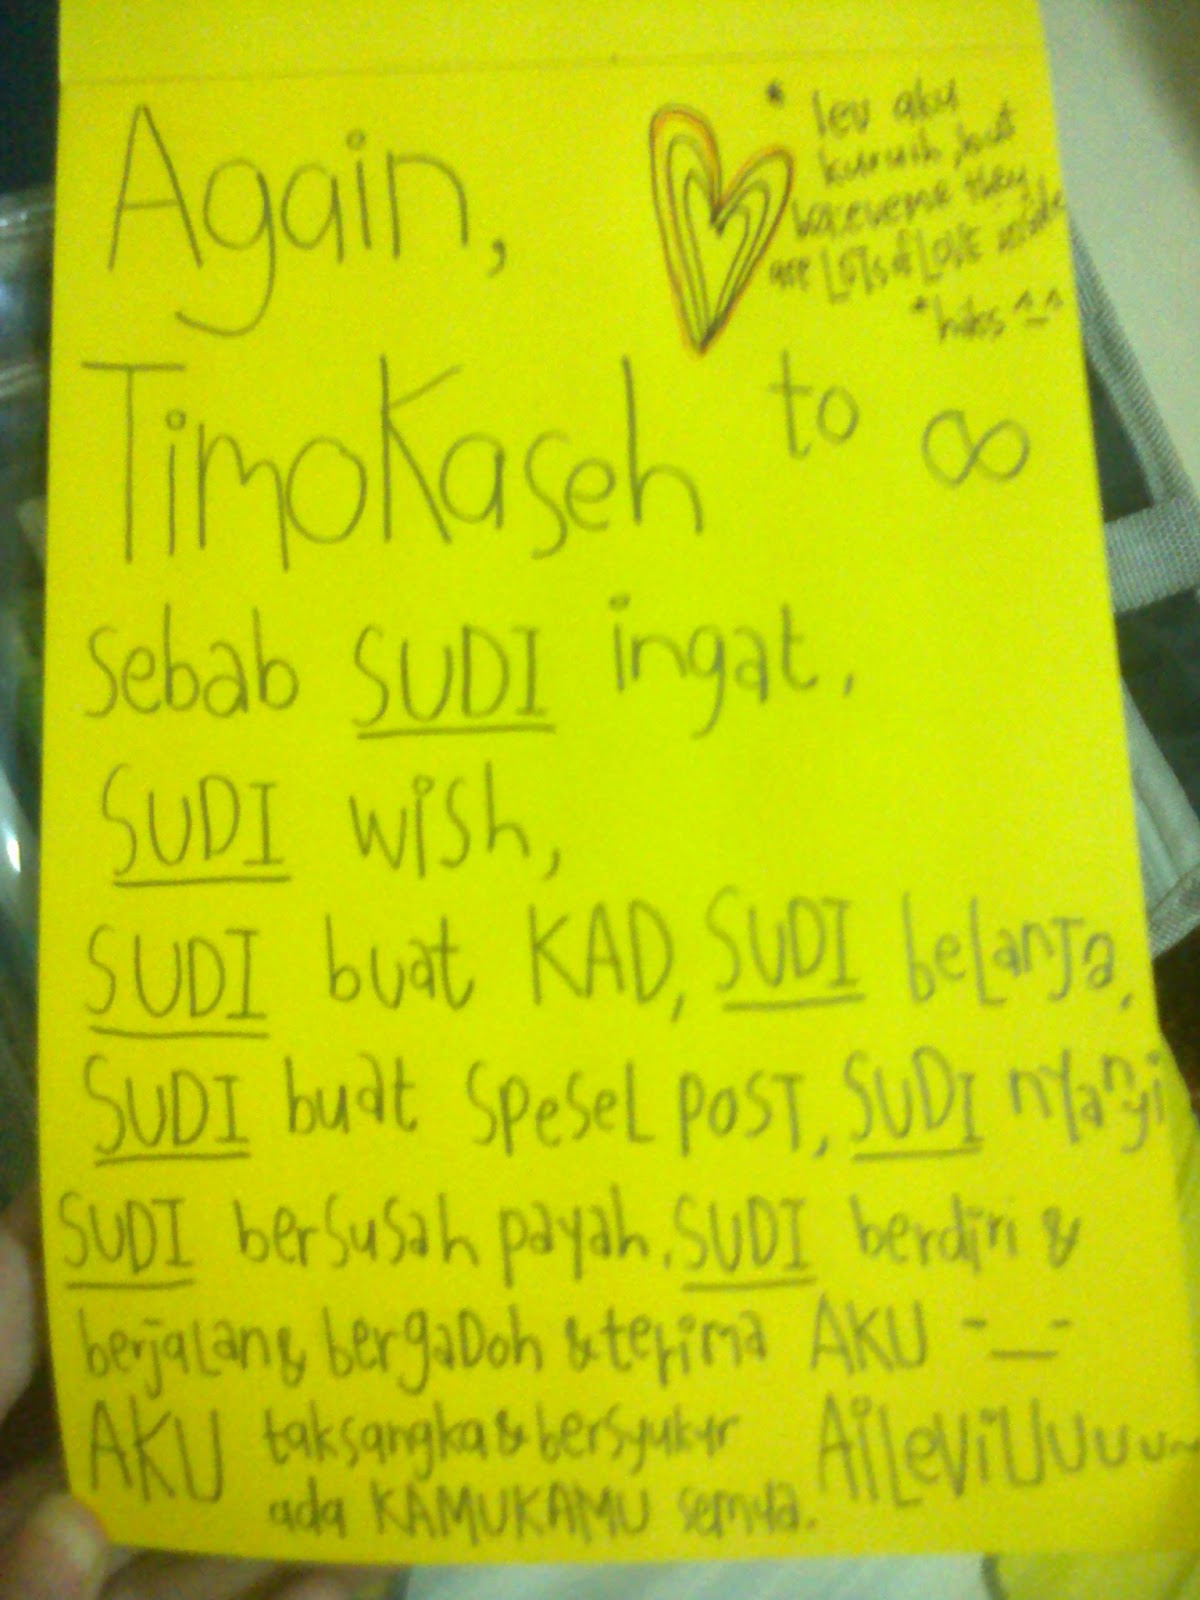 Again,
* lev aku
kurush, but
are LOTs of LOVE inside
*hiks ^_^
TimoKaseh to ∞
sebab SUDI ingat,
SUDI wish,
SUDI buat KAD, SUDI beLanJa,
SUDI buat speseL post, SUDI nyanyi
SUDI bersusah payah, SUDI berdiri &
berjaLan & bergaDoh & terima AKU -__-
AKU taksangka & bersyukur AiLeViUuuu~
ada KAMUKAMU semua.